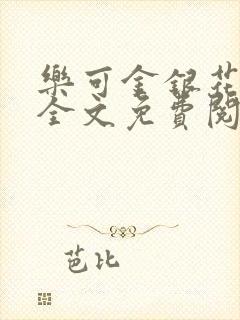 樂可金銀花
全文免費閱
芭比